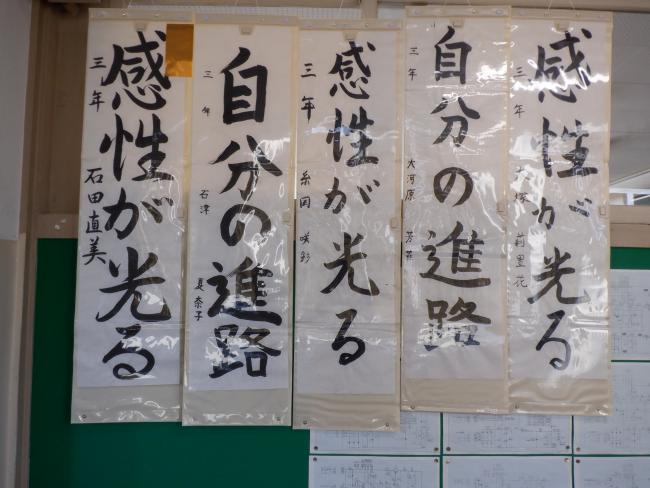 感性が光る
三年 大塚
自分の進路
三年 大河原
感性が光る
三年 糸岡 咲彩
自分の進路
三年 石津
感性が光る
三年 石田直美